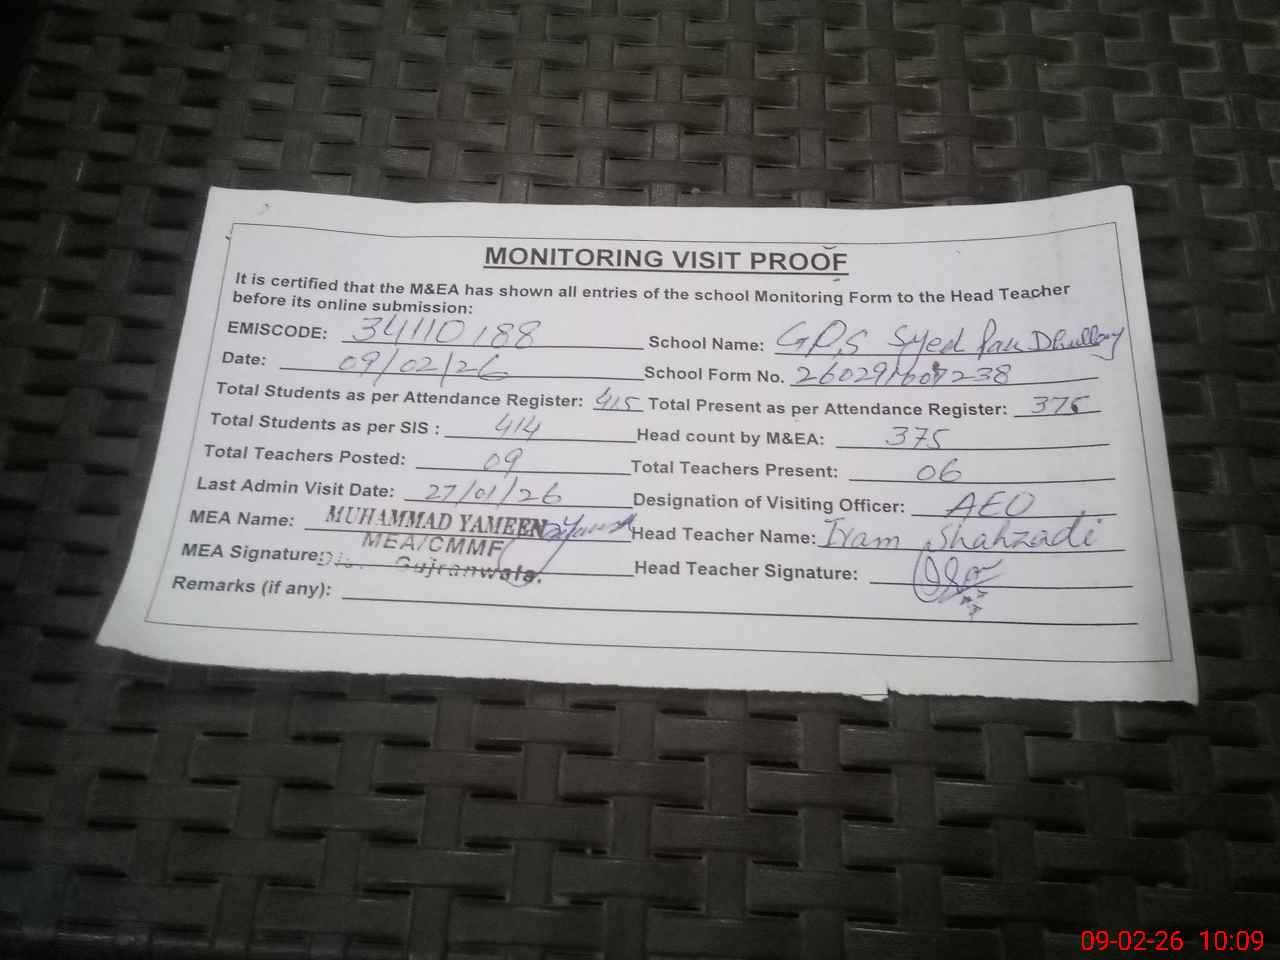 MONITORING VISIT PROOF
It is certified that the M&EA has shown all entries of the school Monitoring Form to the Head Teacher
before its online submission:
EMISCODE: 34110188 School Name: GPS Syed Pau Dhullay
Date: 09/02/26 School Form No. 260291607238
Total Students as per Attendance Register: 415 Total Present as per Attendance Register: 375
Total Students as per SIS : 414 Head count by M&EA: 375
Total Teachers Posted: 09 Total Teachers Present: 06
Last Admin Visit Date: 27/01/26 Designation of Visiting Officer: AEO
MEA Name: MUHAMMAD YAMEEN Head Teacher Name: Iram Shahzadi
MEA/CMMF
MEA Signature: Gujranwala. Head Teacher Signature:
Remarks (if any):
09-02-26 10:09